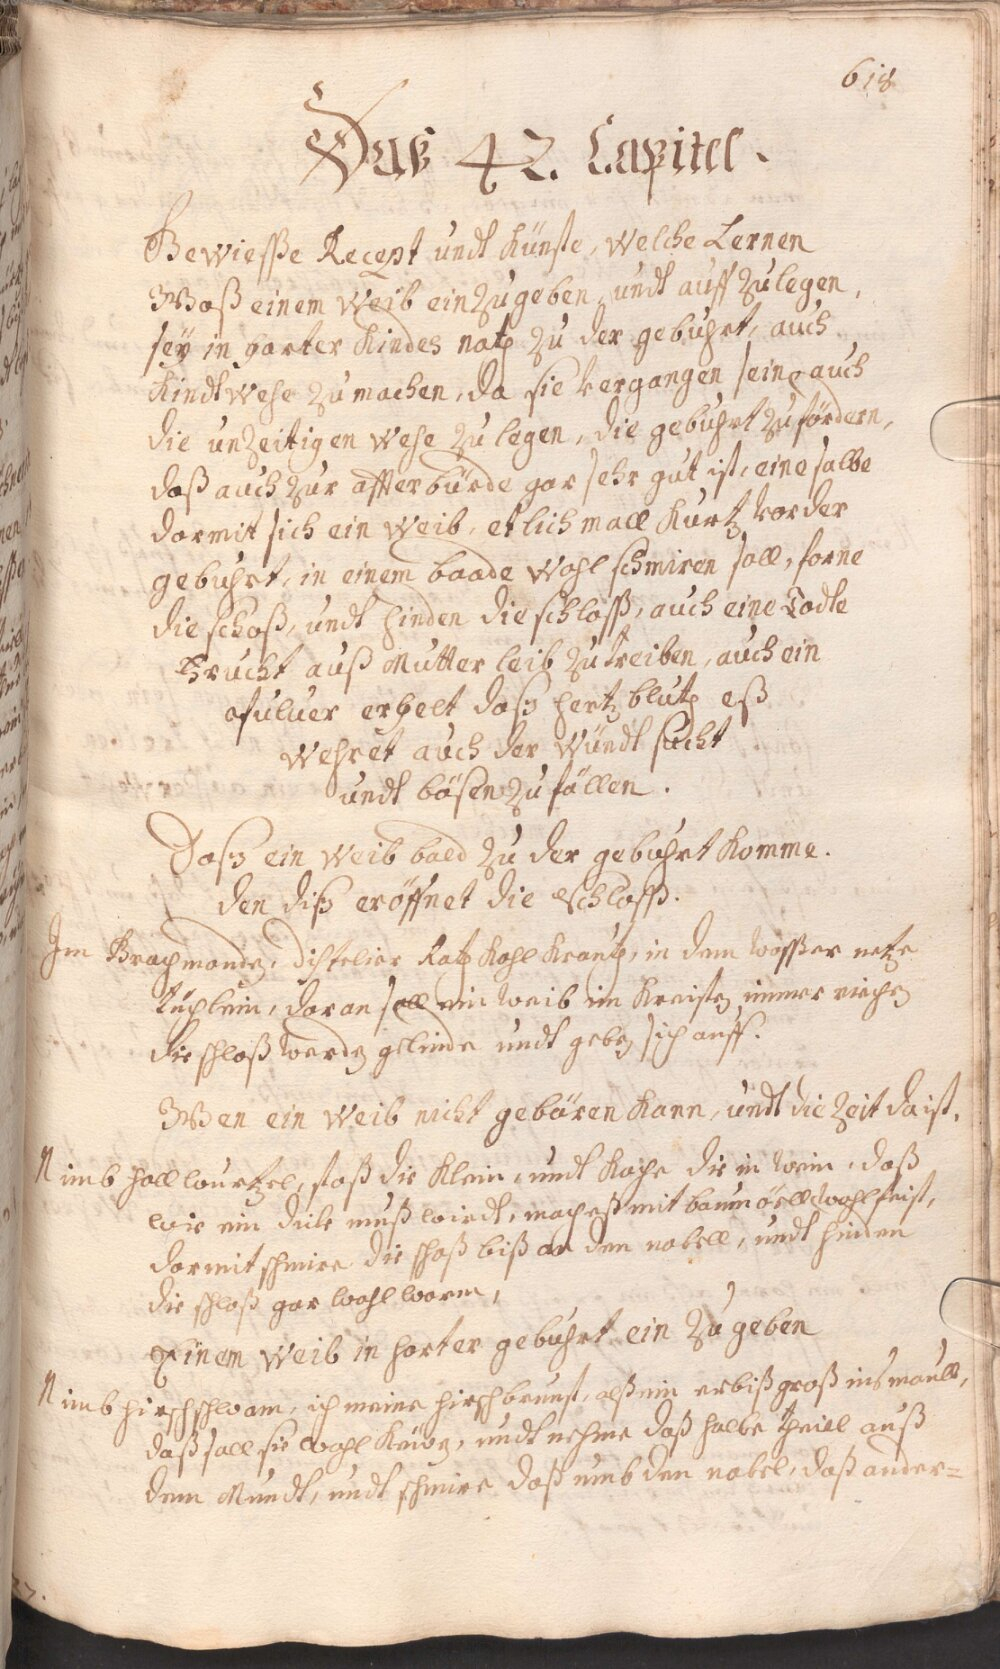 618
Das 42. Capitel.
Bewiesße Recept undt Künste, welche Lernen
Waß einem Weib einzugeben, undt auff zulegen,
seÿ in harter Kindes noth zu der gebuhrt, auch
Kindtwehe zumachen, da sie vergangen sein, auch
die unzeitigen wehe zu legen, die gebuhrt zufördern,
daß auch zur affterbürde gar sehr gut ist, eine salbe
darmit sich ein Weib, etlich mall Kurtz vor der
gebuhrt, in einem baade Wohl schmiren soll, forne
die schoß, undt hinden die schloß, auch eine Todte
Frucht auß Mutter leib zutreiben, auch ein
Puluer erhelt daß hertz blutt, eß
Wehret auch der Wündt sucht
undt bösen zufällen.
Daß ein Weib bald zu der gebuhrt Komme.
den diß eröffnet die schloß.
Im Brachmonden, distelier Rath Kohl Krauth, in dem wasßer netze
tüchlein, daran soll ein weib im Kreisten immer riechen
die schloß werden gelinde undt geben sich auff.
Wen ein Weib nicht gebären Kann, undt die Zeit da ist.
Nimb hollwurtzel, stoß die Klein, undt Koche die in Wein, daß
wie ein dick muß wirdt, mach eß mit baumöell Wohl feist,
darmit schmire die schoß biß an den nabell, undt hinden
die schloß gar wohl warm,
Einem Weib in harter gebuhrt ein zu geben
Nimb hirschschwam, ich meine hirschbrunst, alß ein erbiß groß ins maull,
daß soll sie wohl Käuen, undt nehme daß halbe theill auß
dem Mundt, undt schmire daß umb den nabel, daß ander=